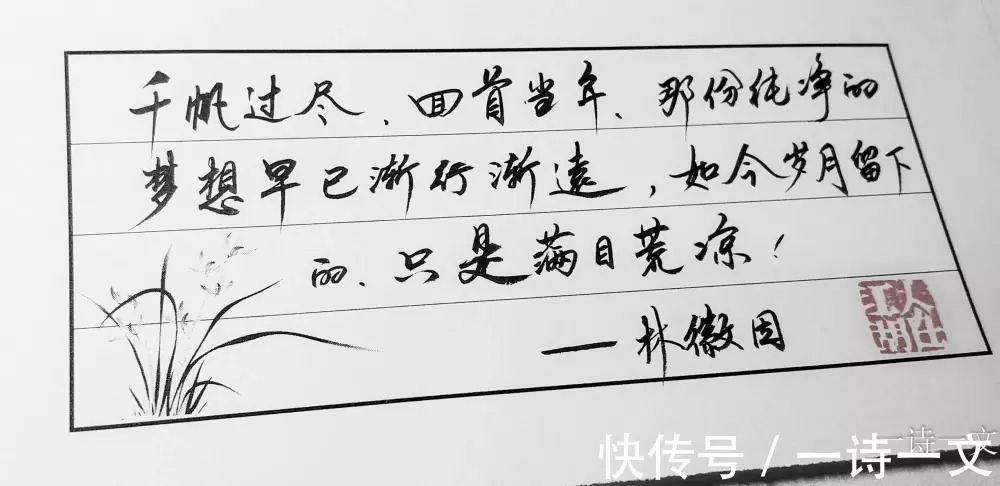 千帆过尽、回首当年、那份纯净的
梦想早已渐行渐遠，如今岁月留下
的、只是满目荒凉！
——林徽因
一诗一文
快传号/一诗一文